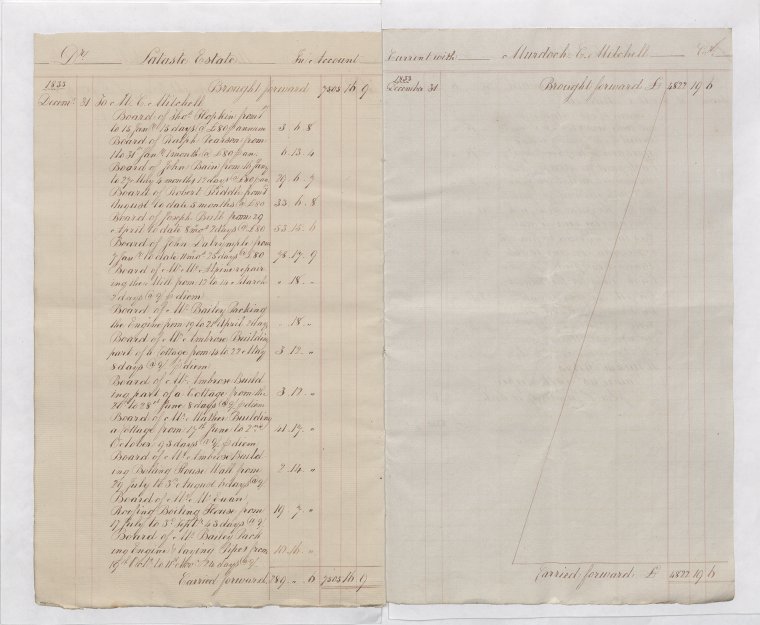 Dr. Lataste Estate In Account
1833 Brought forward 7303 16 9
Decemr. 31 To M. C. Mitchell
Board of Thos. Hopkin from 1st
to 15 Jany. 15 days @ £80 p annum 3 . 6 . 8
Board of Ralph Pearson from
1 to 31st Jany. 1 month @ £80 p an. 6 . 13 . 4
Board of John Bain from 16 Jany.
to 27 May 4 months 12 days @ £80 p an. 29 . 6 . 7
Board of Robert Riddle from 1st
August to date 5 months @ £80 33 . 6 . 8
Board of Joseph Bath from 29
April to date 8 mos. 2 days @ £80 53 . 15 . 6
Board of John Dalrymple from
7 Jany. to date 11 mos. 25 days @ £80 78 . 17 . 9
Board of Mr. McAlpine repair
ing the Mill from 12 to 14 March " 18 . "
2 days @ 9/ p diem
Board of Mr. Bailey Packing
the Engine from 19 to 21st April 2 days " 18 . "
Board of Mr. Ambrose Building
part of a Cottage from 14 to 22 May 3 12 "
8 days @ 9/ p diem
Board of Mr. Ambrose Build
ing part of a Cottage from the 3 . 12 . "
20th to 28th June 8 days @ 9/ p diem
Board of Mr. Mather Building
a Cottage from 17th June to 2nd 41 . 17 . "
October 93 days @ 9/ p diem
Board of Mr. Ambrose Build
ing Boling House Wall from 2 . 14 . "
29 July to 5th August 6 days @ 9/
Board of Mr. McEuan
Roofing Boiling House from 19 . 7 . "
17 July to 5th Septr. 43 days @ 9/
Board of Mr. Bailey Pack
ing Engine & laying Pipes from 10 . 16 . "
19th Octr. to 11th Novr. 24 days @ 9/
Carried forward 289 . " . 6 7303 16 9
Current with Murdoch C. Mitchell Cr.
1833
December 31 Brought forward £ 4822 19 6
Carried forward £ 4822 19 6